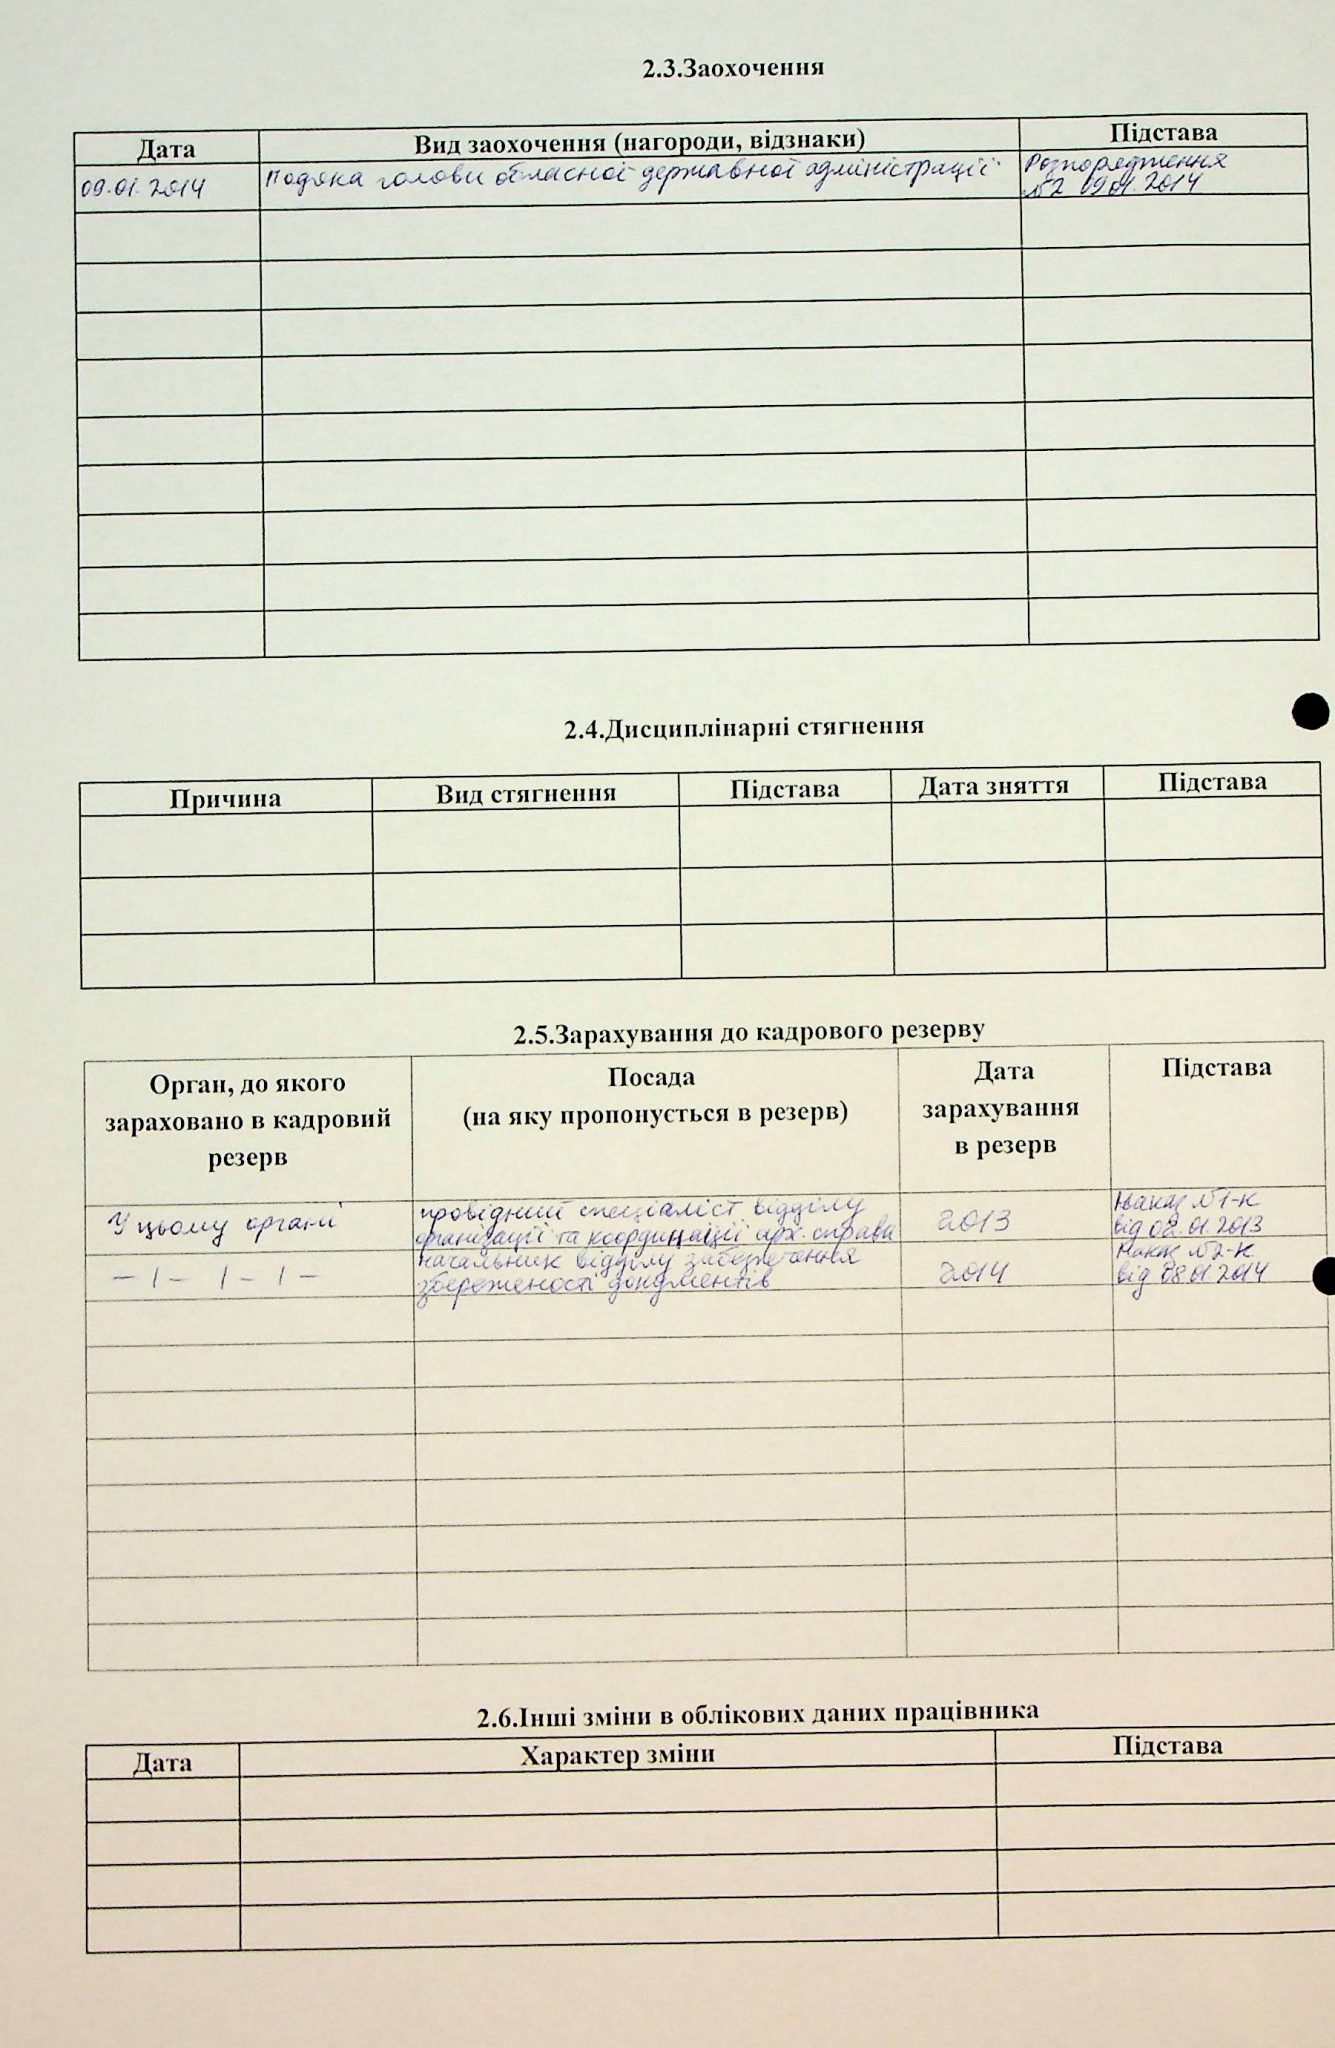 2.3.Заохочення
Дата Вид заохочення (нагороди, відзнаки) Підстава
09.01.2014 Подяка голови обласної державної адміністрації Розпорядження
№2 09.01.2014
2.4.Дисциплінарні стягнення
Причина Вид стягнення Підстава Дата зняття Підстава
2.5.Зарахування до кадрового резерву
Орган, до якого
зараховано в кадровий
резерв
Посада
(на яку пропонується в резерв)
Дата
зарахування
в резерв
Підстава
У цьому органі
провідний спеціаліст відділу
організації та координації арх. справи
2013
Наказ №1-к
від 02.01.2013
– / – / – / –
начальник відділу забезпечення
збереженості документів
2014
Наказ №2-к
від 08.01.2014
2.6.Інші зміни в облікових даних працівника
Дата Характер зміни Підстава